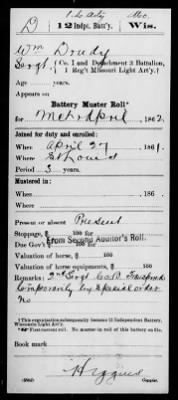 1 L Arty Mo.
D 12 Indpt. Batt'y. Wis.
Wm Drudy
Sergt., Co. I and Detachment 3 Battalion,
1 Reg't Missouri Light Art'y.†
Age years.
Appears on
Battery Muster Roll*
for Mch & April, 1862.
Joined for duty and enrolled:
When April 27, 1861.
Where St Louis
Period 3 years.
Mustered in:
When , 186 .
Where
Present or absent Present
Stoppage, $ 100 for
From Second Auditor's Roll.
Due Gov't $ 100
Valuation of horse, $ 100
Valuation of horse equipments, $ 100
Remarks: 2nd Sergt Co D Transferred
temporarily by special order
No
†This organization subsequently became 12 Independent Battery,
Wisconsin Light Art'y.
Book mark
Higgins
Copyist.